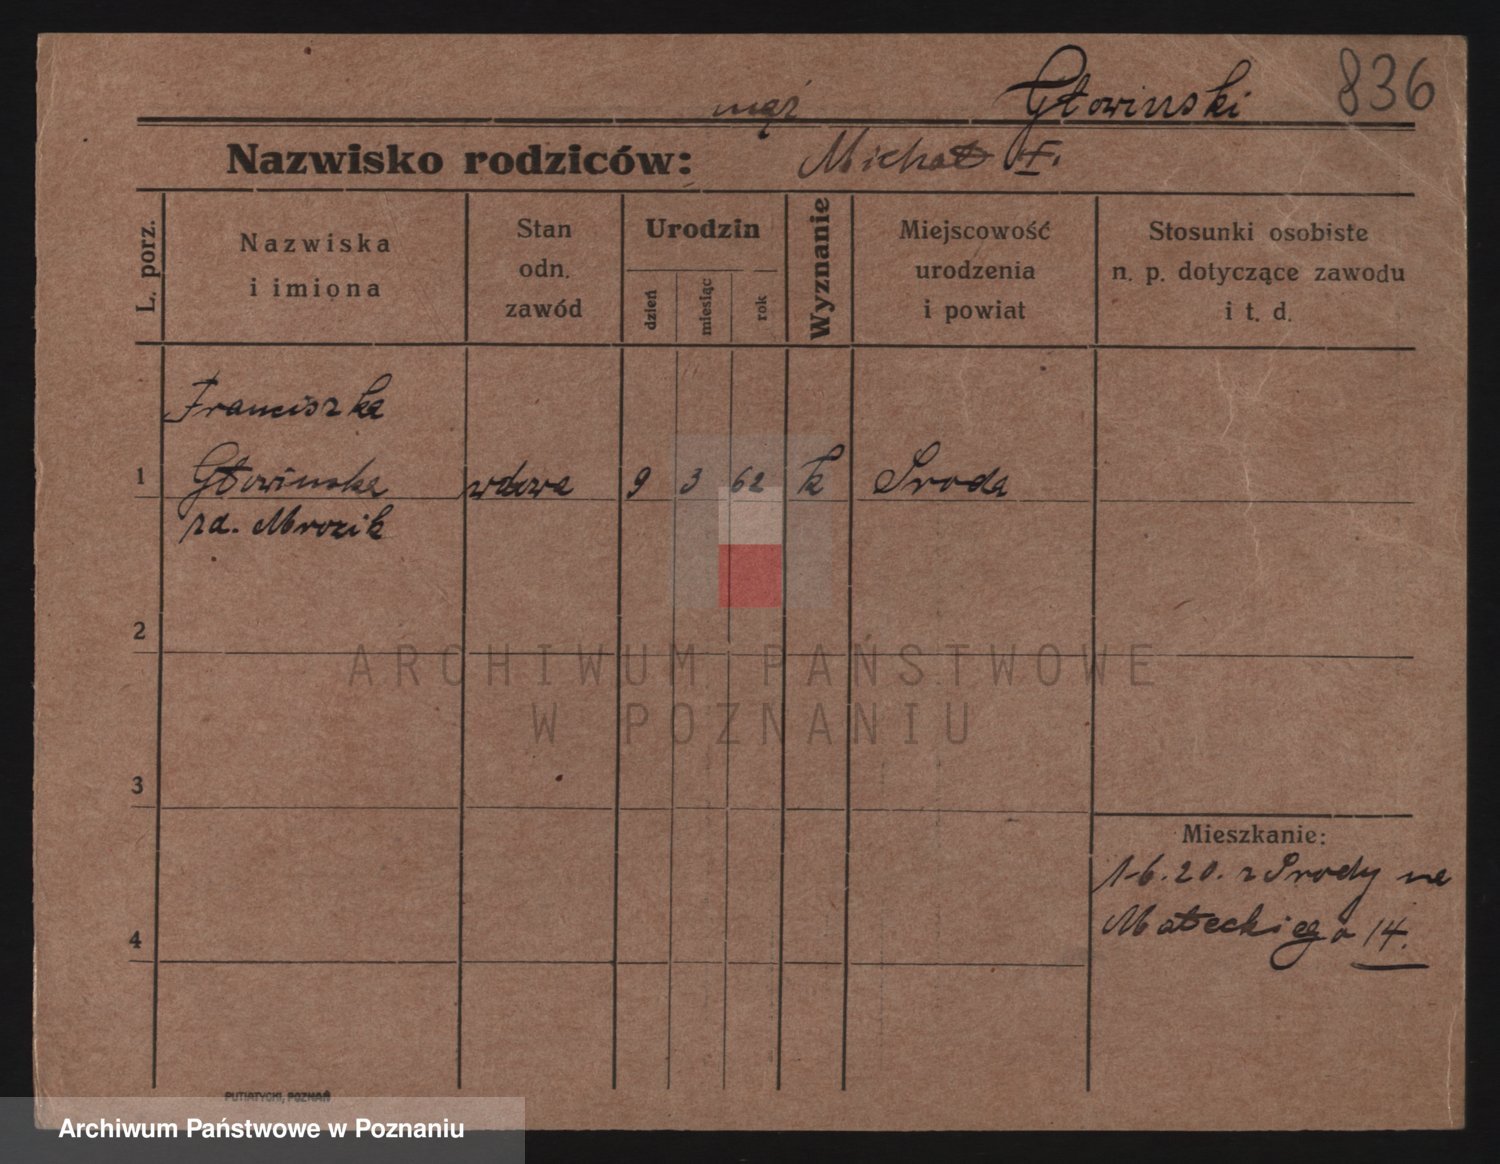 836
mąż Głowinski
Nazwisko rodziców: Michał I.
L. porz.
Nazwiska
i imiona
Stan
odn.
zawód
Urodzin
dzień
miesiąc
rok
Wyznanie
Miejscowość
urodzenia
i powiat
Stosunki osobiste
n. p. dotyczące zawodu
i t. d.
Franciszka
1 Głowinska wdowa 9 3 62 k Sroda
rd. Mrozik
2
3
4
Mieszkanie:
1-6.20. z Srody na
Małeckiego 14.
PUTIATYCKI, POZNAŃ
ARCHIWUM PAŃSTWOWE
W POZNANIU
Archiwum Państwowe w Poznaniu